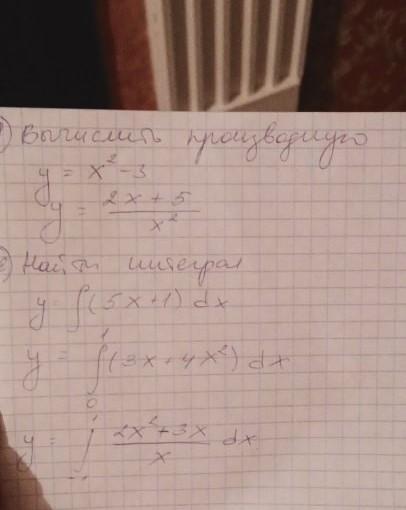 1) Вычислить производную
y = x² - 3
y = (2x + 5) / x²
2) Найти интеграл
y = ∫(5x+1) dx
y = ∫₀¹(3x+4x²) dx
y = ∫₋₁¹ (2x²+3x) / x dx